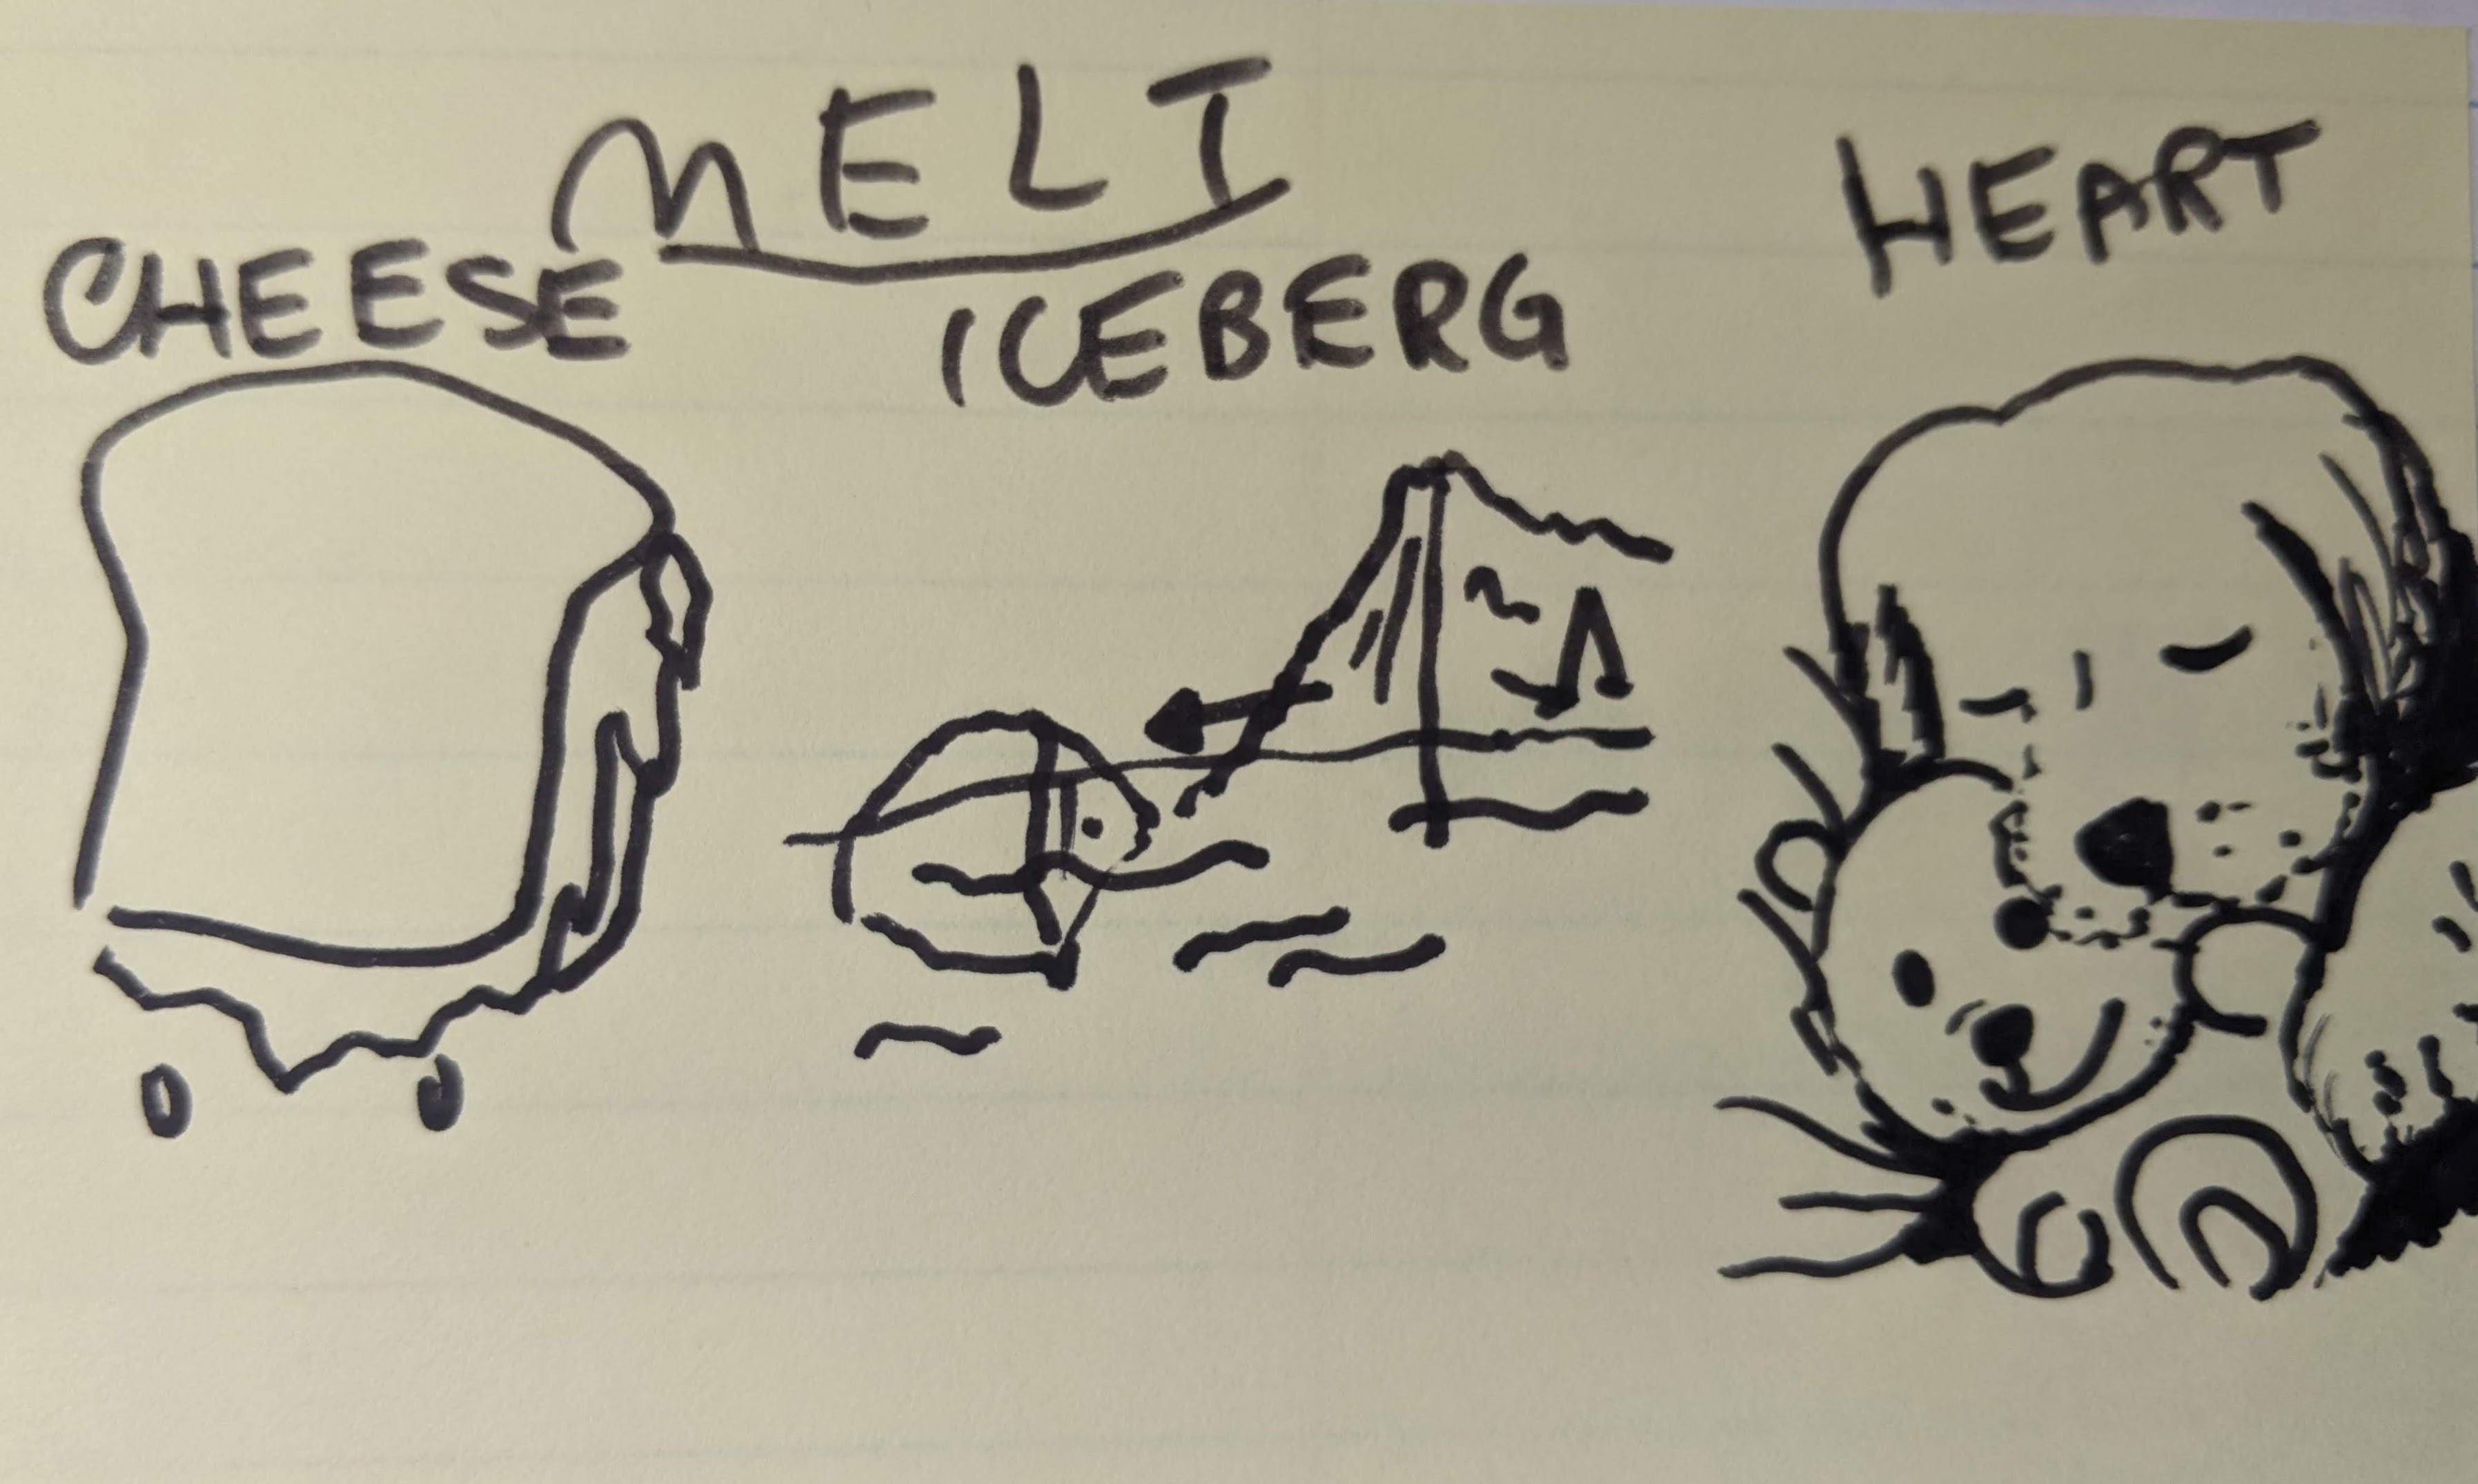 MELT
CHEESE
ICEBERG
HEART